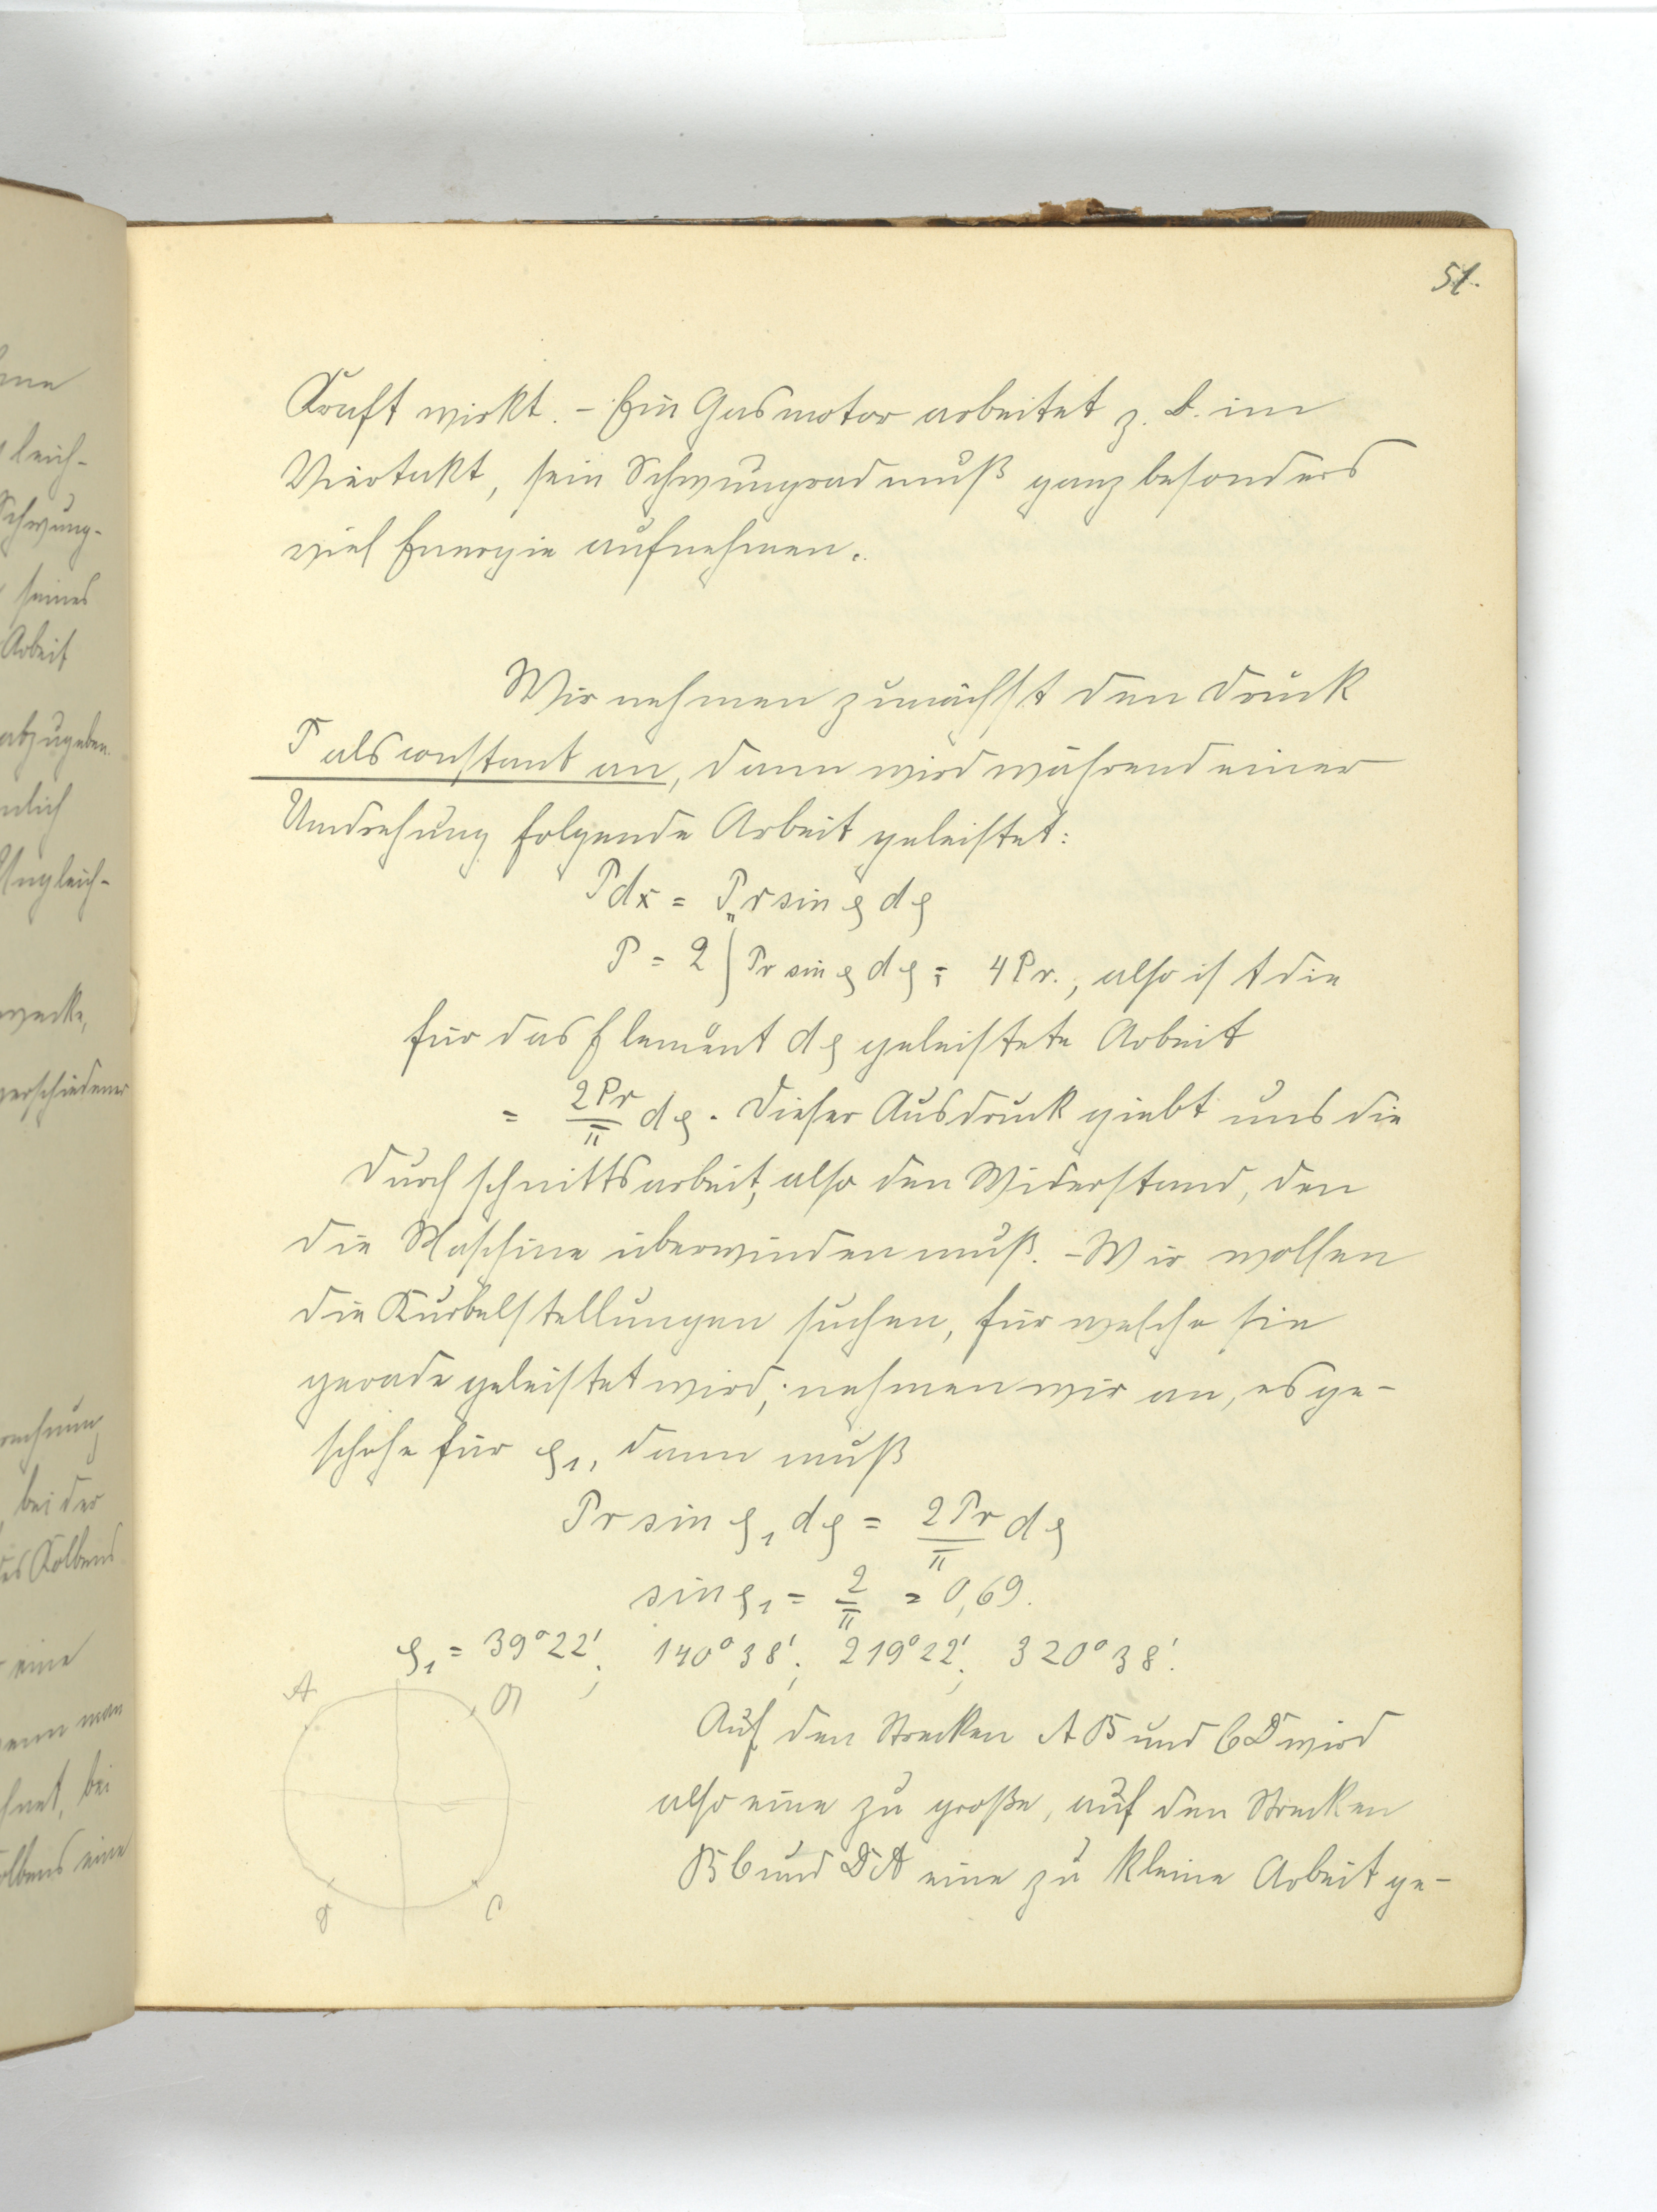 51.
Kraft wirkt. – Ein Gasmotor arbeitet z. B. im
Viertakt, sein Schwungrad muß ganz besonders
viel Energie aufnehmen.
Wir nehmen zunächst den Druck
P als constant an, dann wird während einer
Umdrehung folgende Arbeit geleistet:
Pdx = Pr sin φ dφ
P = 2 ∫ Pr sin φ dφ = 4Pr., also ist die
für das Element dφ geleistete Arbeit
= 2Pr/π dφ. Dieser Ausdruck giebt uns die
Durchschnittsarbeit, also den Widerstand, den
die Maschine überwinden muß. – Wir wollen
die Kurbelstellungen suchen, für welche sie
gerade geleistet wird; nehmen wir an, es ge-
schehe für φ₁, dann muß
Pr sin φ₁ dφ = 2Pr/π dφ
sin φ₁ = 2/π = 0,69.
φ₁ = 39°22'; 140°38'; 219°22'; 320°38'.
A B
Auf den Strecken AB und CD wird
also eine zu große, auf den Strecken
BC und DA eine zu kleine Arbeit ge-
D C